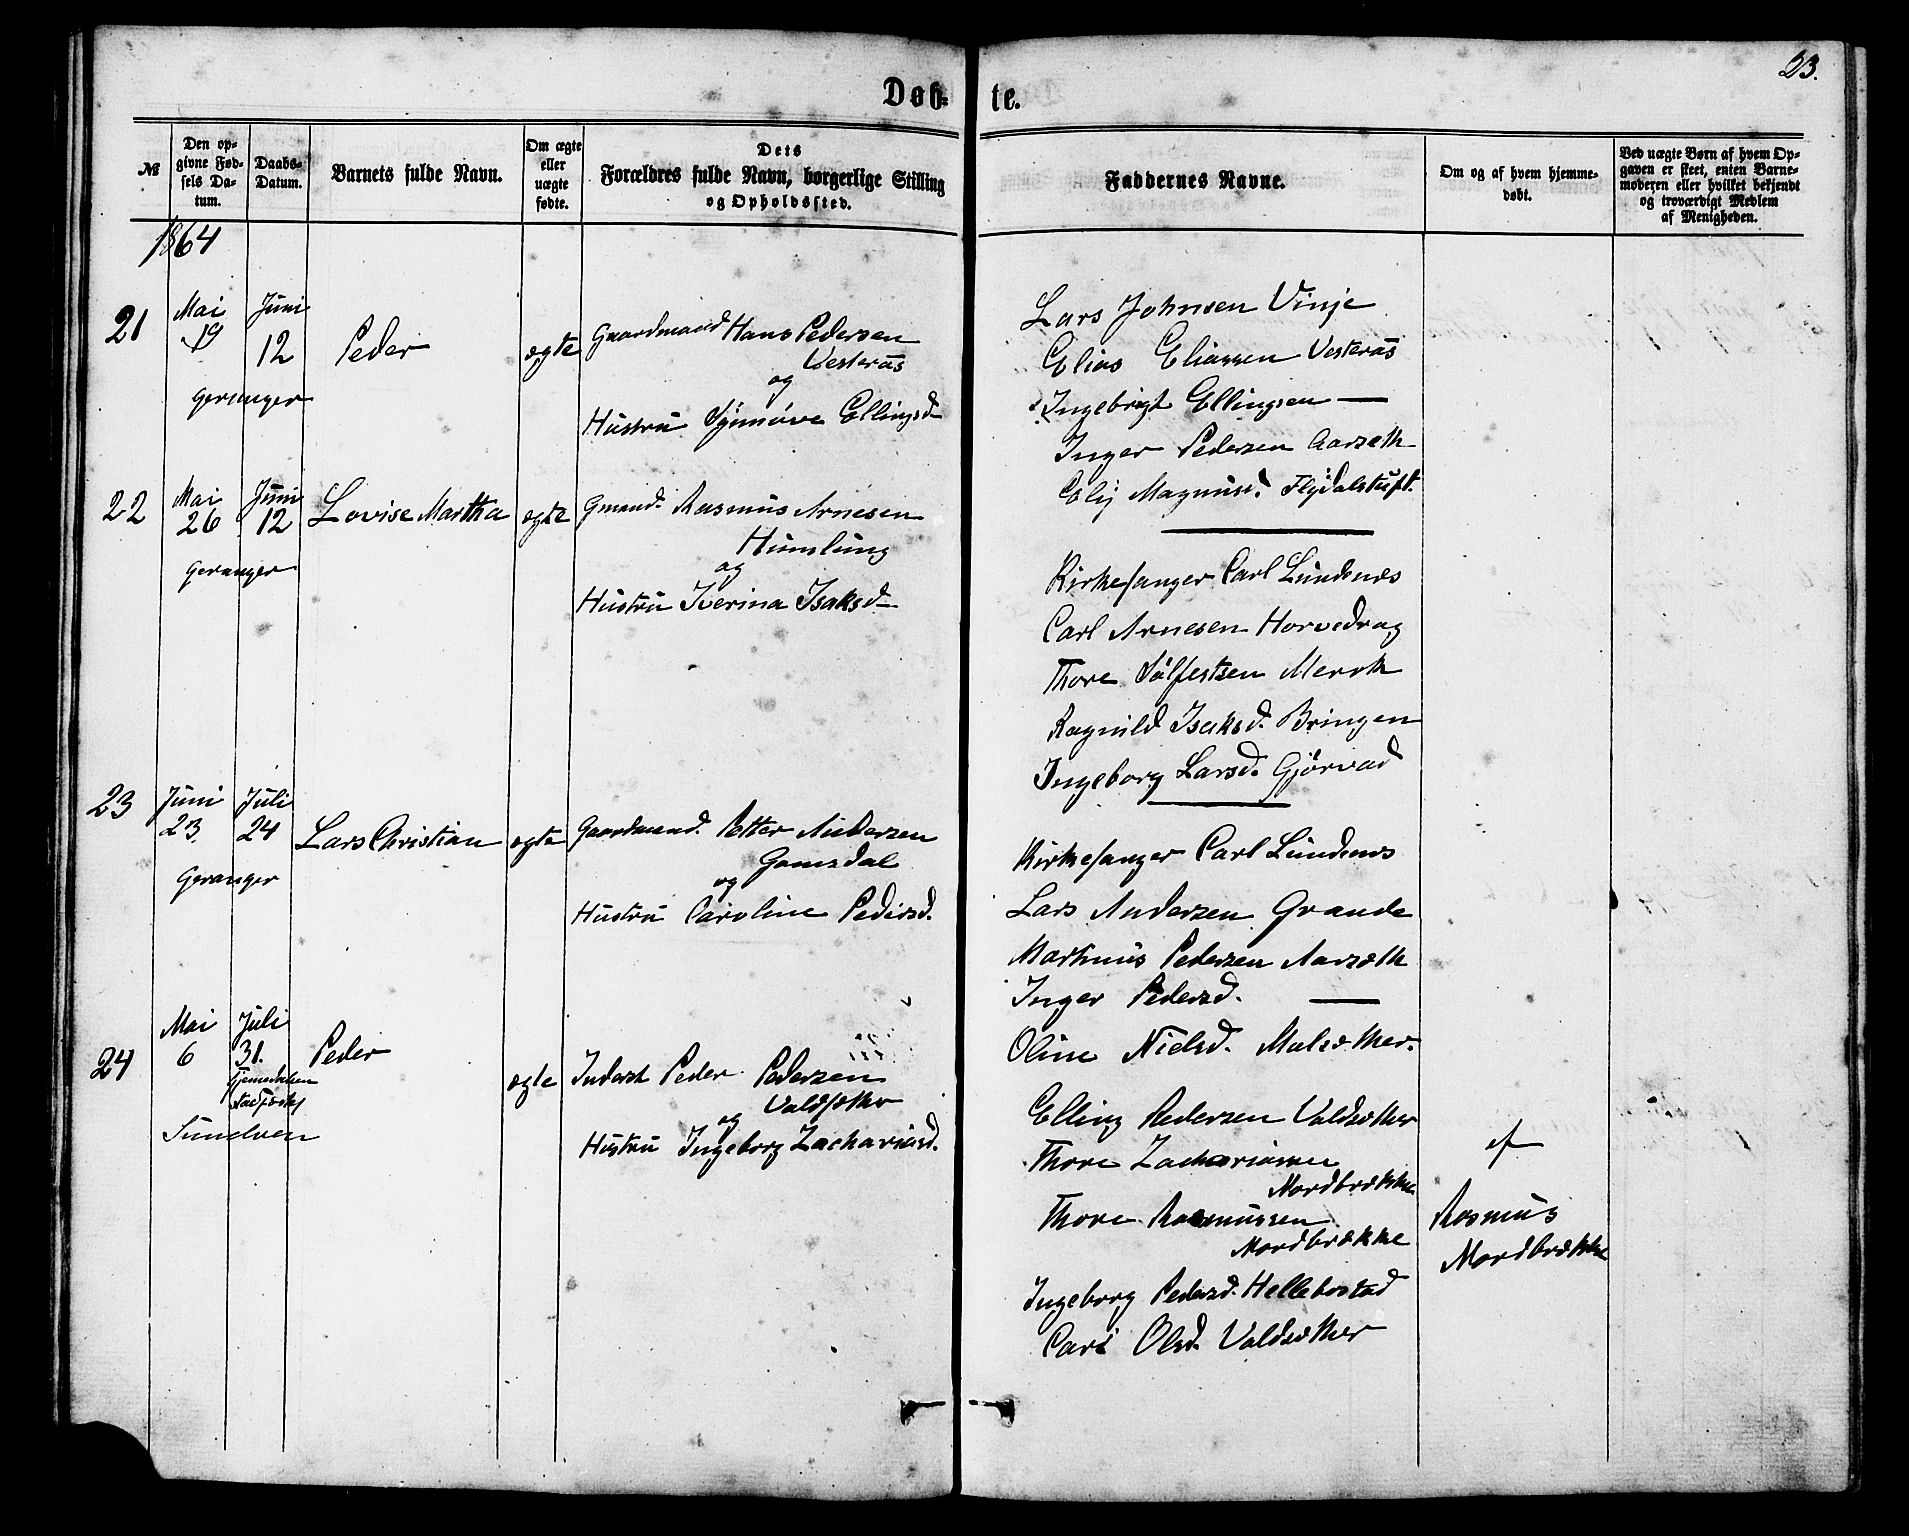 Døb-
te.
23.
№
Den op-
givne Fød-
sels Da-
tum.
Daabs-
Datum.
Barnets fulde Navn.
Om ægte
eller
uægte
fødte.
Dets
Forældres fulde Navn, borgerlige Stilling
og Opholdssted.
Faddernes Navne.
Om og af hvem hjemme-
døbt.
Ved uægte Børn af hvem Op-
gaven er skeet, enten Barne-
moderen eller hvilket bekjendt
og troværdigt Medlem
af Menigheden.
1864
21
Mai
19
Juni
12
Geranger
Peder
ægte
Gaardmand Hans Pedersen
Vesterås
og
Hustru Synnøve Ellingsd
Lars Johnsen Vinje
Elias Eliassen Vesterås
Ingebrigt Ellingsen —
Inger Pedersen Aarseth
Elij Magnusd. Flydalstuft.
22
Mai
26
Juni
12
Geranger
Lovise Martha
ægte
Gmand. Rasmus Arnesen
Humlung
og
Hustru Iverina Isaksd
Kirkesanger Carl Lundenes
Carl Arnesen Horvedrag
Thore Sølfestsen Merok
Ragnild Isaksd. Bringen
Ingeborg Larsd. Gjørvad
23
Juni
23
Juli
24
Geranger
Lars Christian
ægte
Gaardmand. Petter Andersen
Gomsdal
og
Hustru Caroline Pedersd.
Kirkesanger Carl Lundenes
Lars Andersen Grande
Martinus Pedersen Aarseth
Inger Pedersd. —
Oline Nielsd. Malsæther.
24
Mai
6
Juli
31.
Sunelven
Peder
ægte
Inderst Peder Pedersen
Valdsæther
og
Hustru Ingeborg Zachariasd.
Elling Pedersen Valdsæther
Thore Zachariassen
Nordbrække
Thore Rasmussen
Nordbrække
Ingeborg Pedersd. Hellebostad
Cari Olsd. Valdsæther
af
Rasmus
Nordbrække